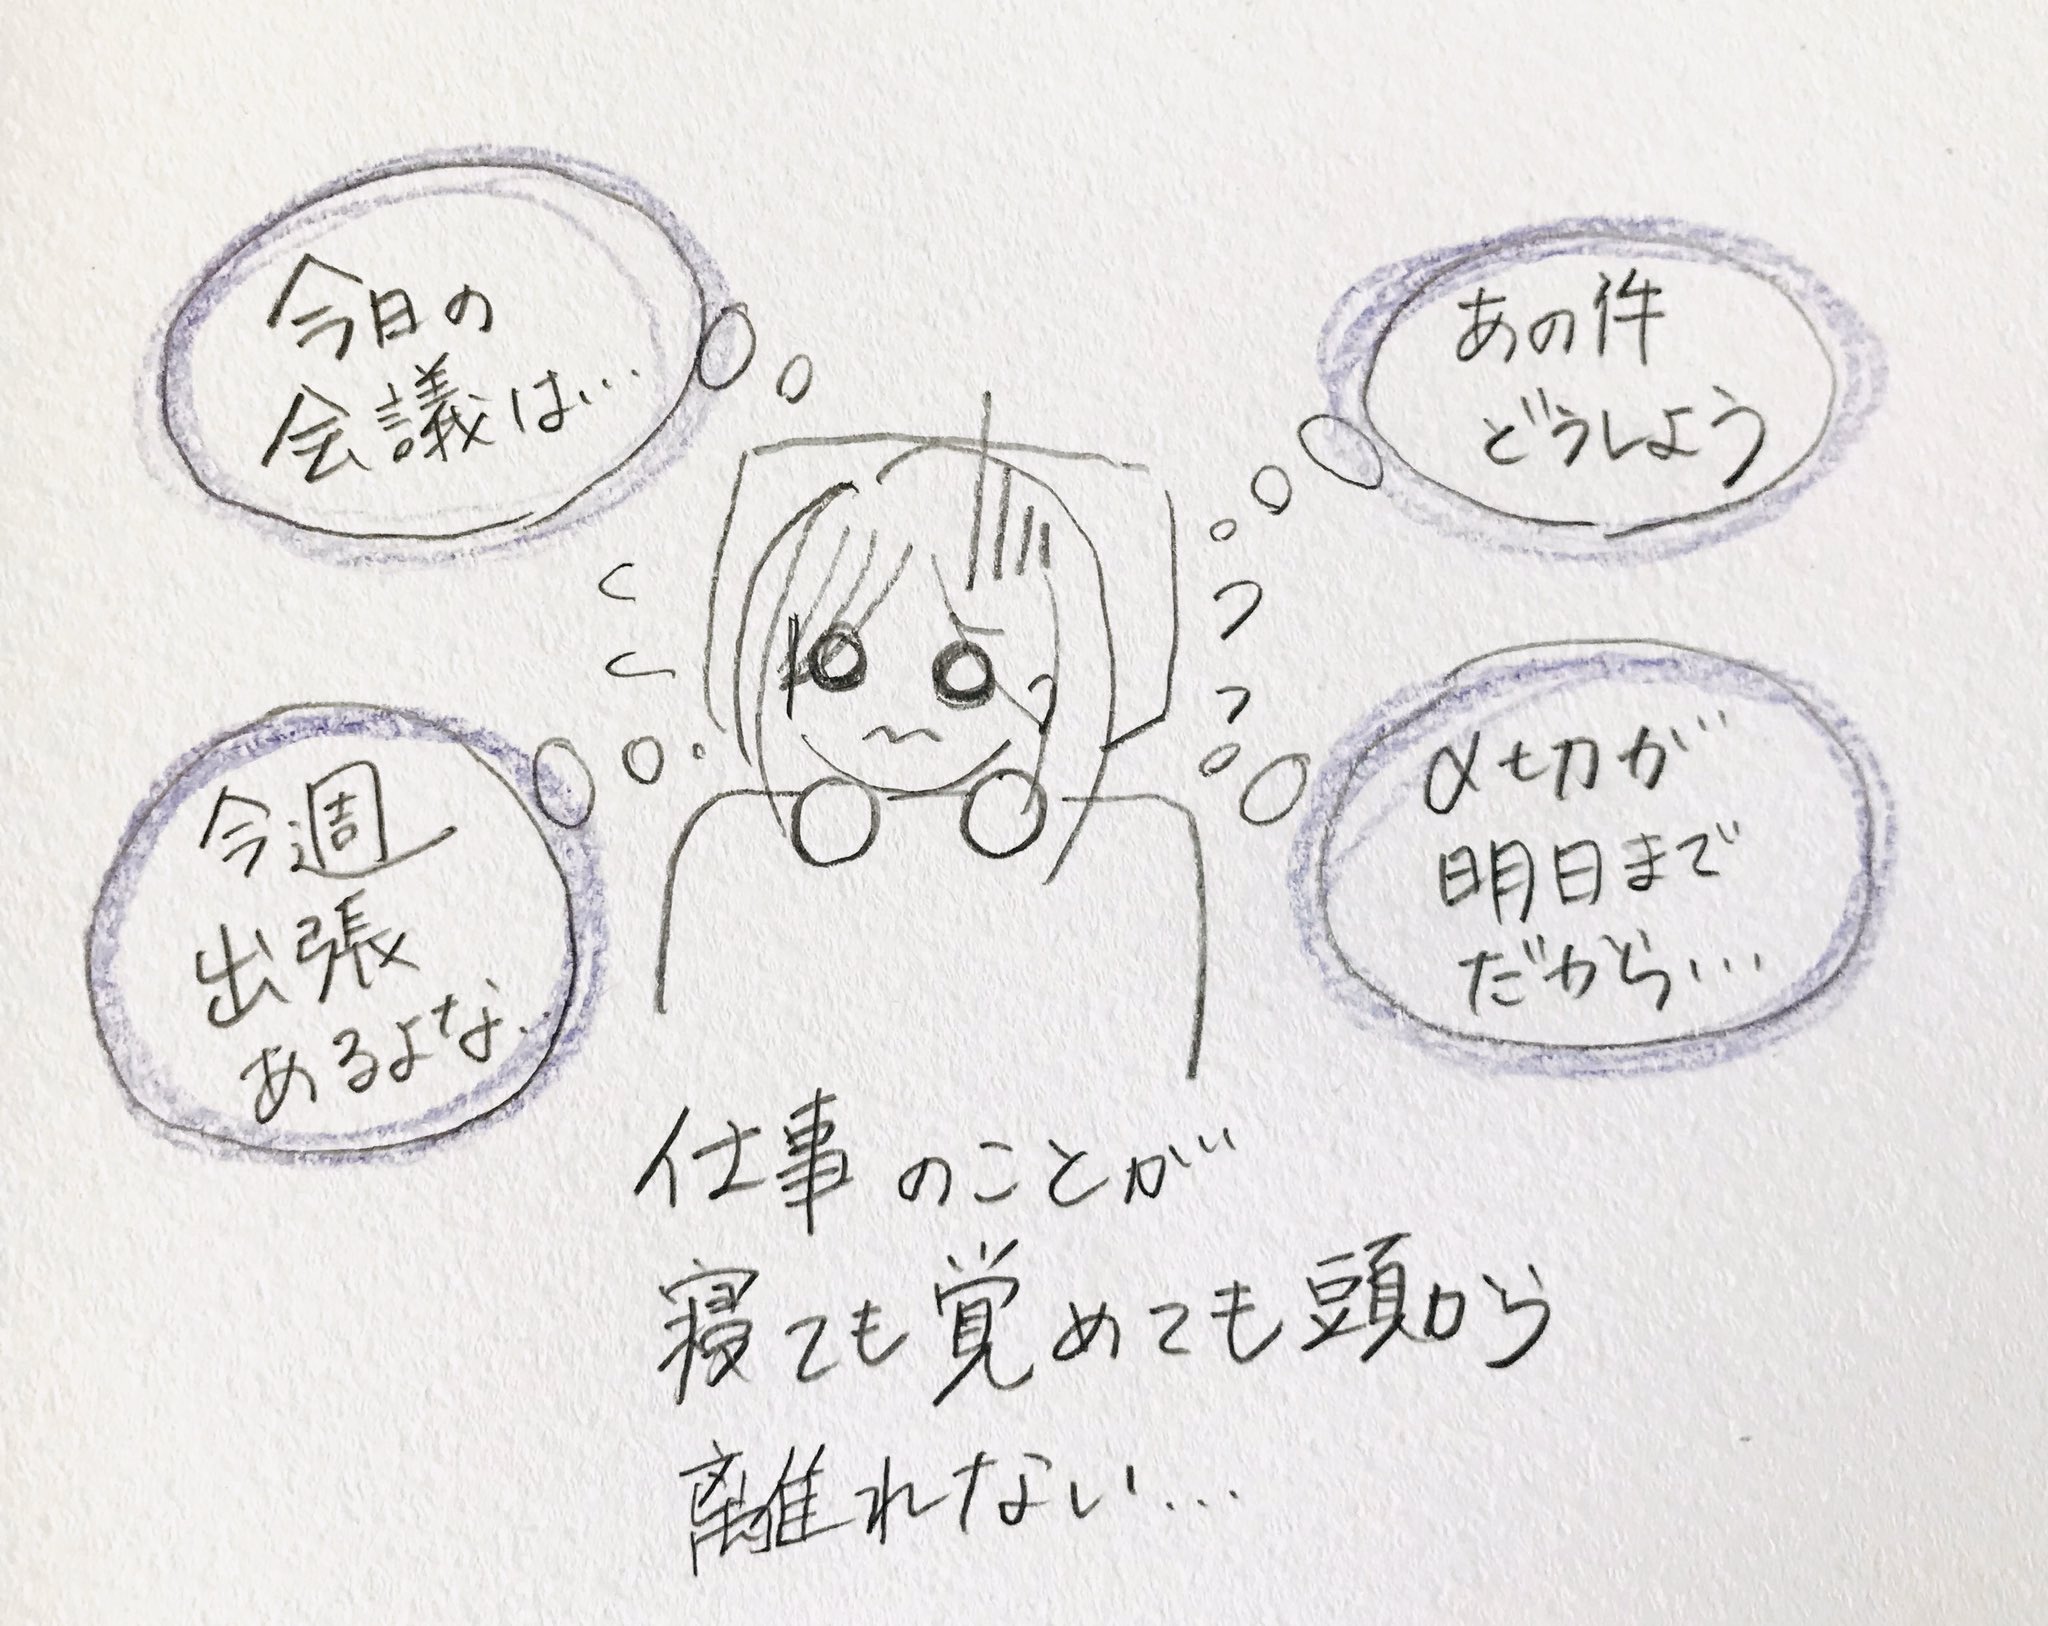 今日の
会議は…
あの件
どうしよう
今週
出張
あるよな…
〆切が
明日まで
だから…
仕事のことが
寝ても覚めても頭から
離れない…